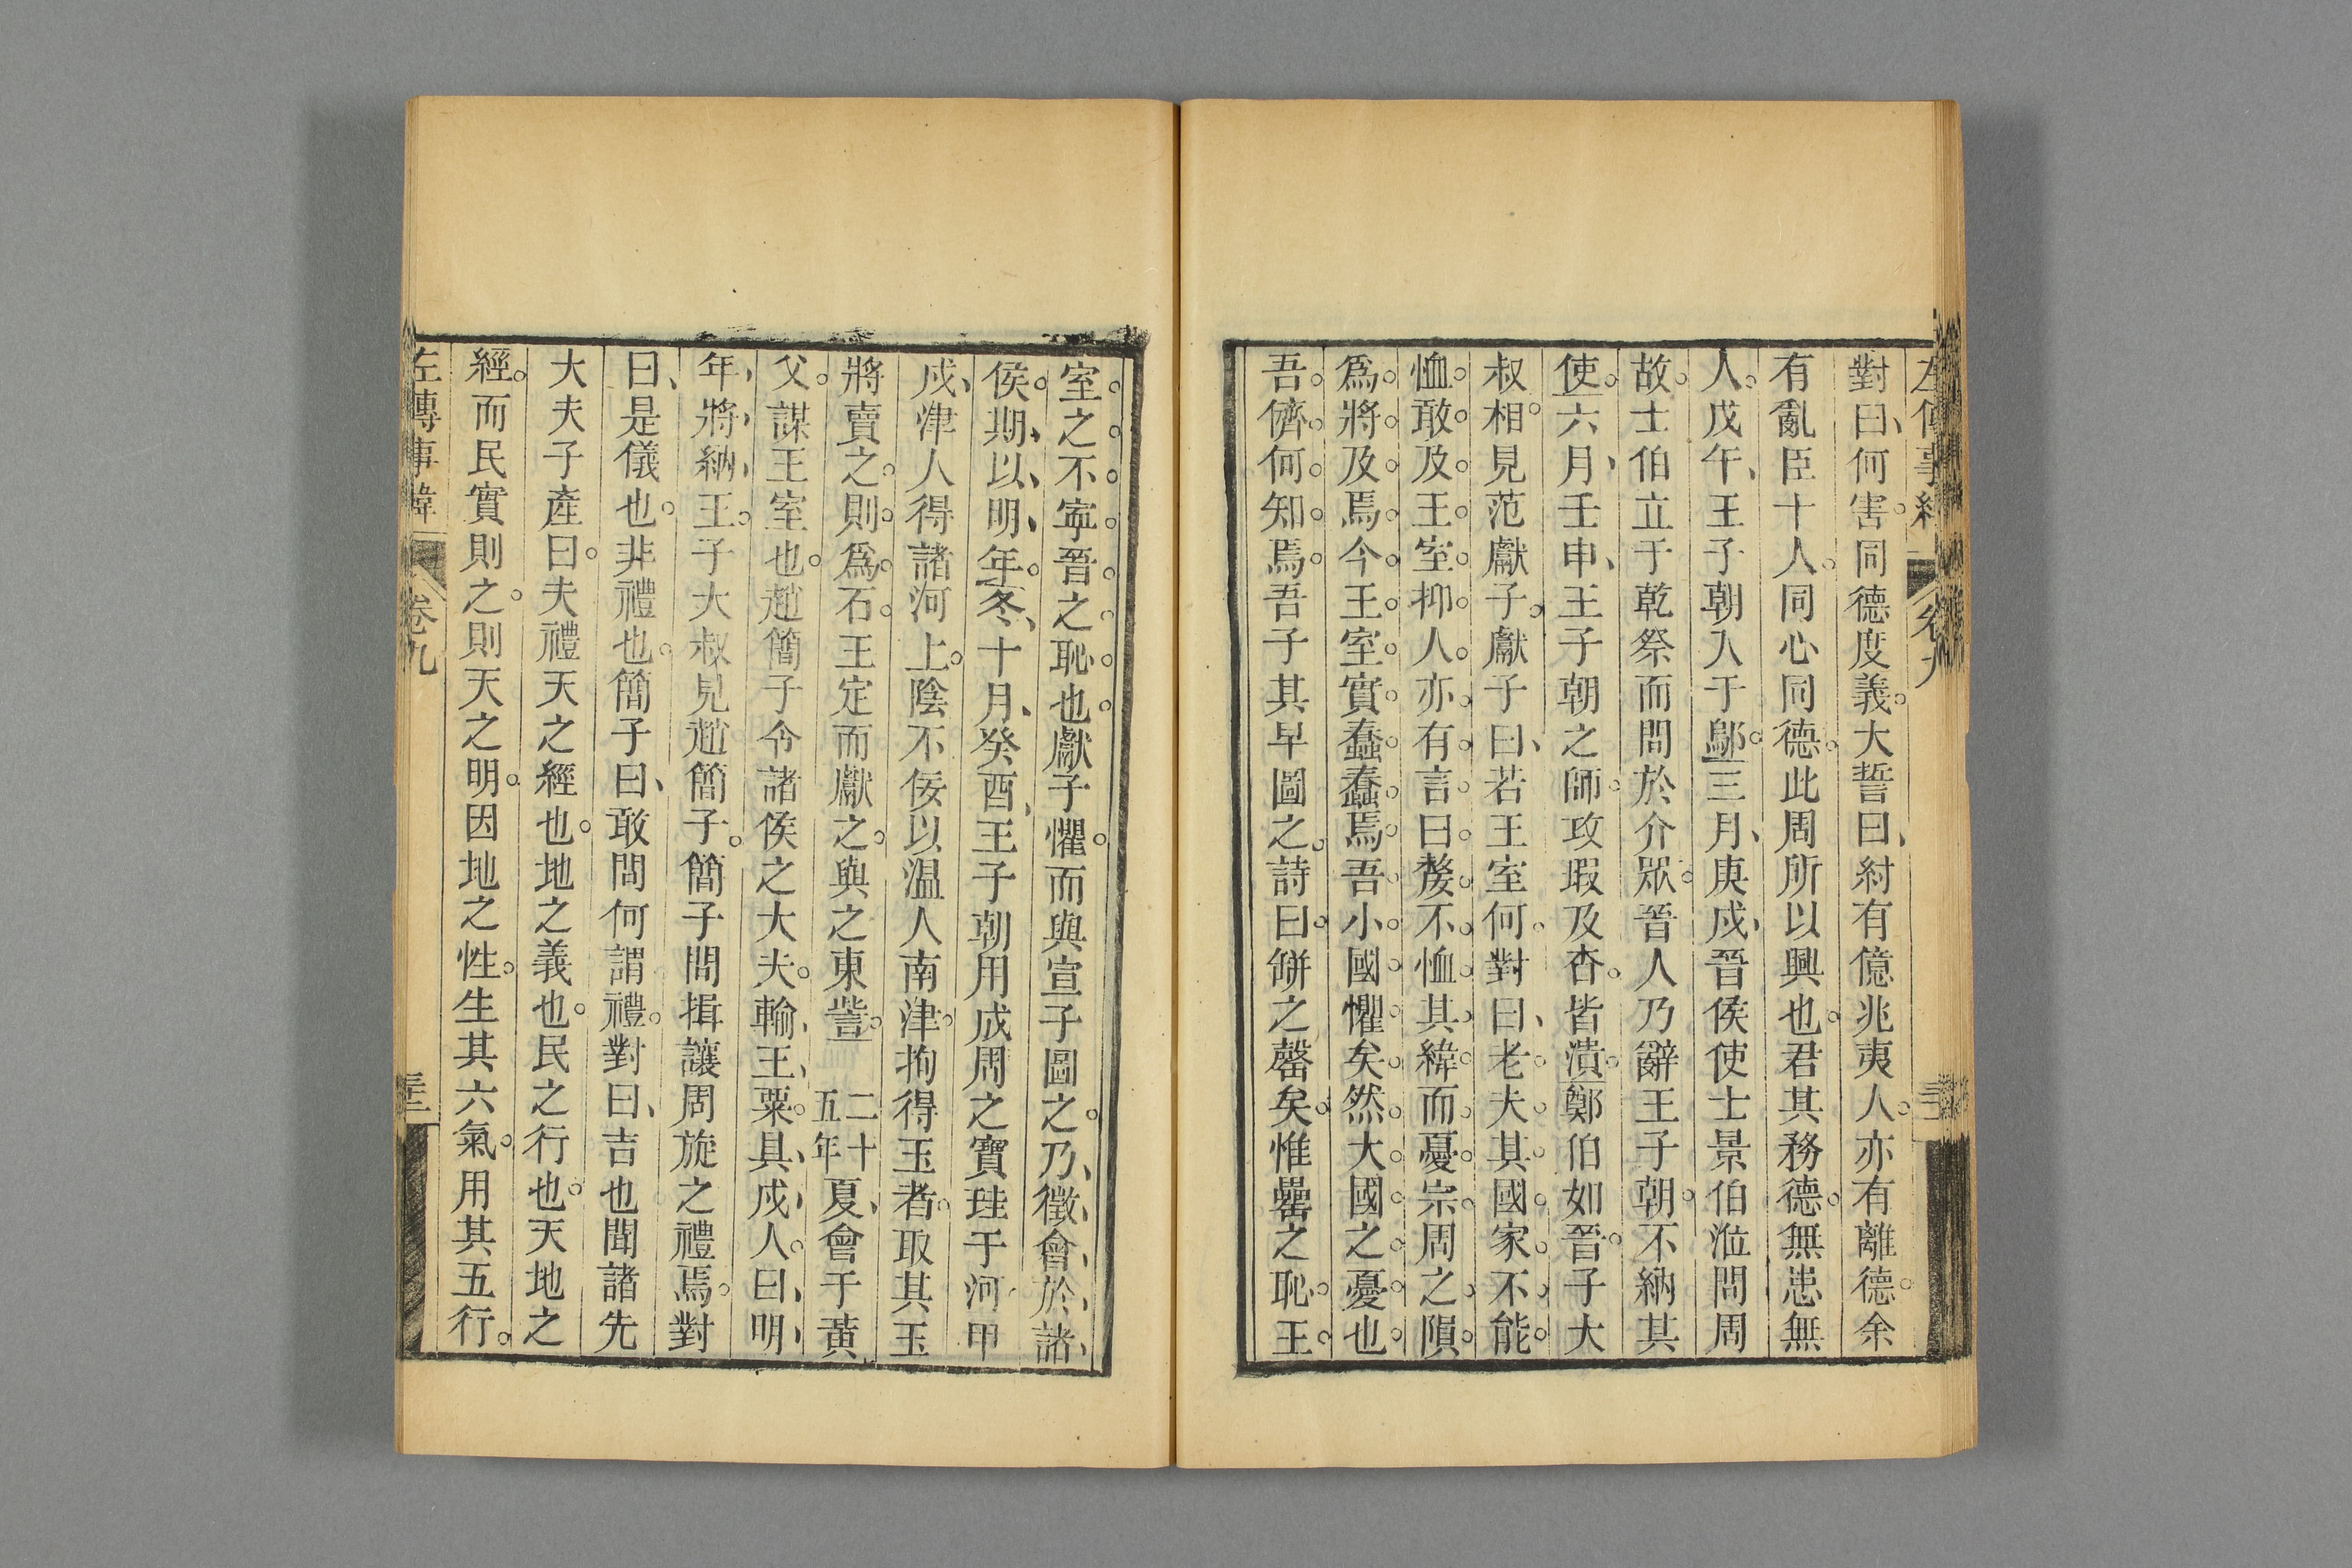 左傳事緯 卷九
對曰何害同德度義大誓曰紂有億兆夷人亦有離德余
有亂臣十人同心同德此周所以興也君其務德無患無
人戊午王子朝入于鄔三月庚戌晉侯使士景伯涖問周
故士伯立于乾祭而問於介眾晉人乃辭王子朝不納其
使六月壬申王子朝之師攻瑕及杏皆潰鄭伯如晉子大
叔相見范獻子獻子曰若王室何對曰老夫其國家不能
恤敢及王室抑人亦有言曰嫠不恤其緯而憂宗周之隕
爲將及焉今王室實蠢蠢焉吾小國懼矣然大國之憂也
吾儕何知焉吾子其早圖之詩曰缾之罄矣惟罍之恥王
室之不寧晉之恥也獻子懼而與宣子圖之乃徵會於諸
侯期以明年冬十月癸酉王子朝用成周之寶珪于河甲
戌津人得諸河上陰不佞以溫人南津拘得玉者取其玉
將賣之則爲石王定而獻之與之東訾 二十五年夏會于黃
父謀王室也趙簡子令諸侯之大夫輸王粟具戍人曰明
年將納王子大叔見趙簡子簡子問揖讓周旋之禮焉對
曰是儀也非禮也簡子曰敢問何謂禮對曰吉也聞諸先
大夫子產曰夫禮天之經也地之義也民之行也天地之
經而民實則之則天之明因地之性生其六氣用其五行
左傳事緯 卷九